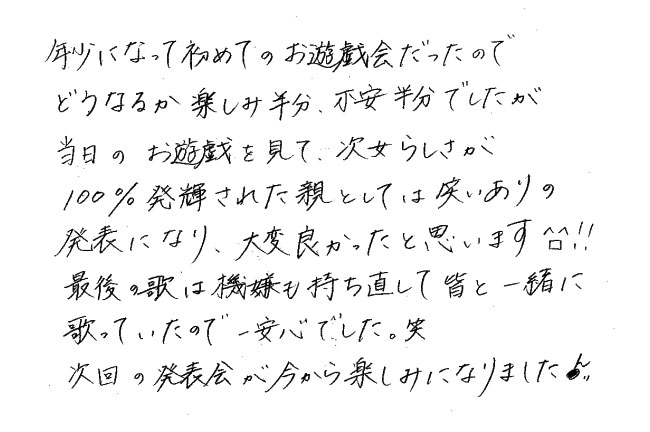 年少になって初めてのお遊戯会だったので
どうなるか楽しみ半分、不安半分でしたが
当日のお遊戯を見て、次女らしさが
100%発揮された親としては笑いありの
発表になり、大変良かったと思います^□^!!
最後の歌は機嫌も持ち直して皆と一緒に
歌っていたので一安心でした。笑
次回の発表会が今から楽しみになりました♪